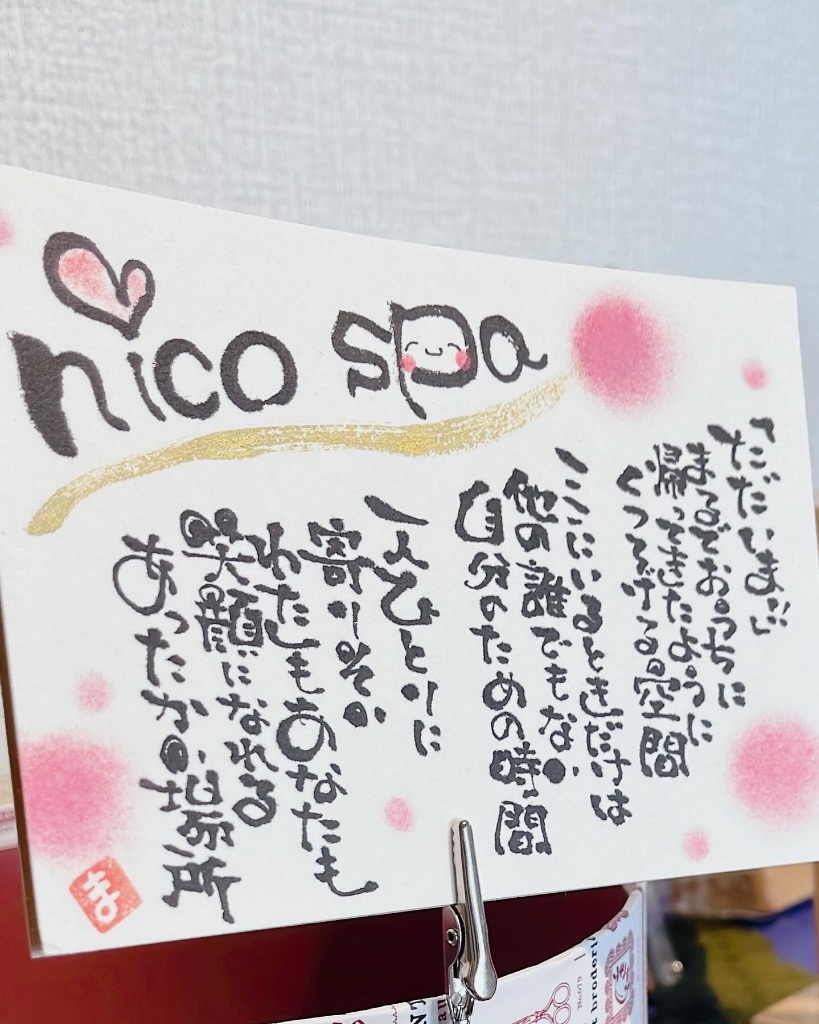 nico spa
「ただいま」
まるでお家に
帰ってきたように
くつろげる空間
ここにいるときだけは
他の誰でもない
自分のための時間
一人ひとりに
寄りそい
わたしもあなたも
笑顔になれる
あったかい場所
ま
No.079
broderi